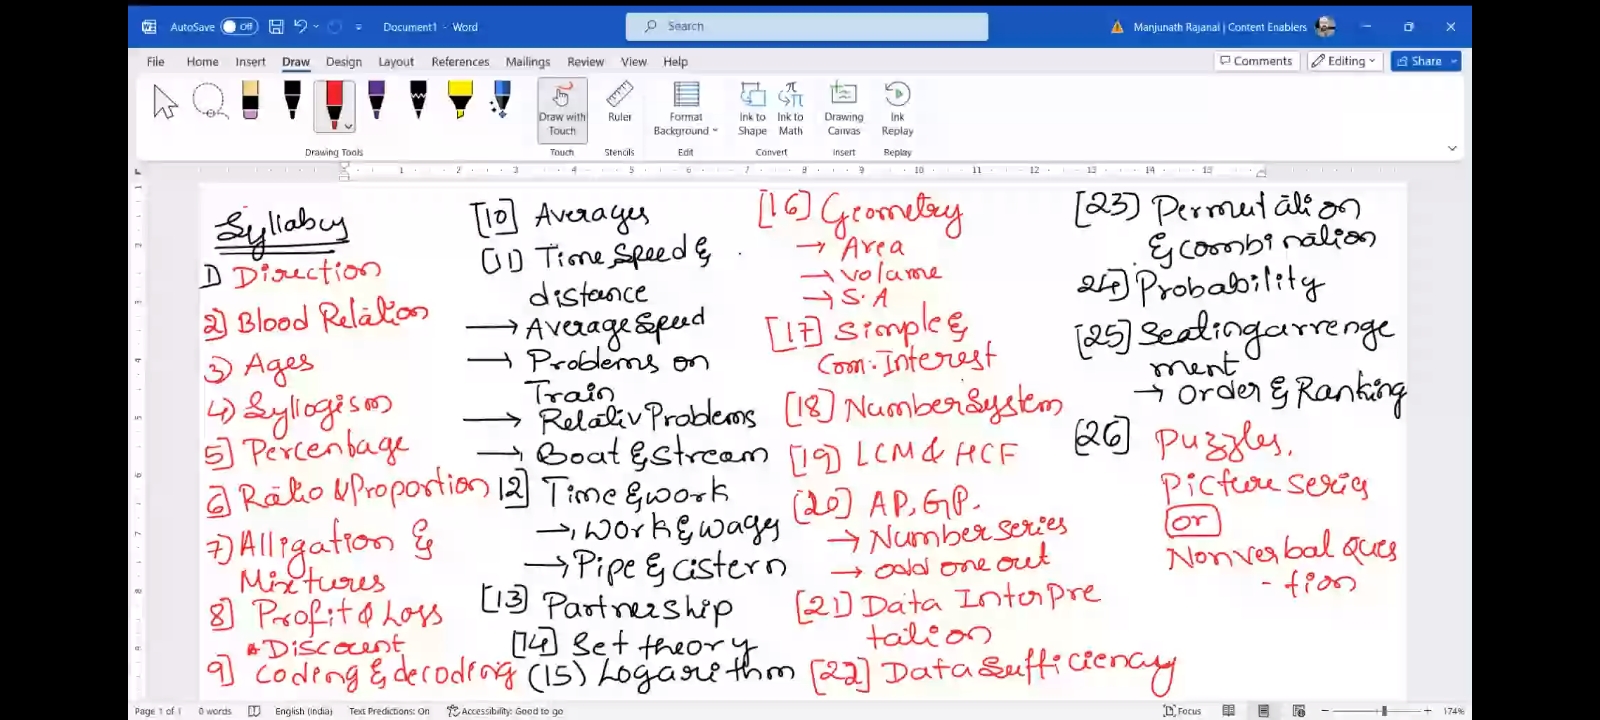 AutoSave Off
Document1 - Word
Search
Manjunath Rajanal | Content Enablers
File Home Insert Draw Design Layout References Mailings Review View Help
Comments
Editing
Share
Draw with Touch
Ruler
Format Background
Ink to Shape
Ink to Math
Drawing Canvas
Ink Replay
Drawing Tools
Touch
Stencils
Edit
Convert
Insert
Replay
Syllabus
1) Direction
2) Blood Relation
3) Ages
4) Syllogism
5) Percentage
6) Ratio & Proportion
7) Alligation &
Mixtures
8) Profit & Loss
& Discount
9) Coding & decoding
[10] Averages
(11) Time Speed &
distance
→ Average Speed
→ Problems on
Train
→ Relativ Problems
→ Boat & Stream
12] Time & work
→ Work & wages
→ Pipe & Cistern
[13] Partnership
[14] Set theory
(15) Logarithm
[16] Geometry
→ Area
→ Volume
→ S.A
[17] Simple &
Com: Interest
[18] Number System
[19] LCM & HCF
[20] AP, GP.
→ Number series
→ odd one out
[21] Data Interpre
tation
[22] Data Sufficiency
[23] Permutation
& combination
24] Probability
[25] Seating arrenge
ment
→ Order & Ranking
[26] Puzzles,
Picture series
or
Non verbal Ques
-tion
Page 1 of 1 0 words English (India) Text Predictions: On Accessibility: Good to go
Focus
174%